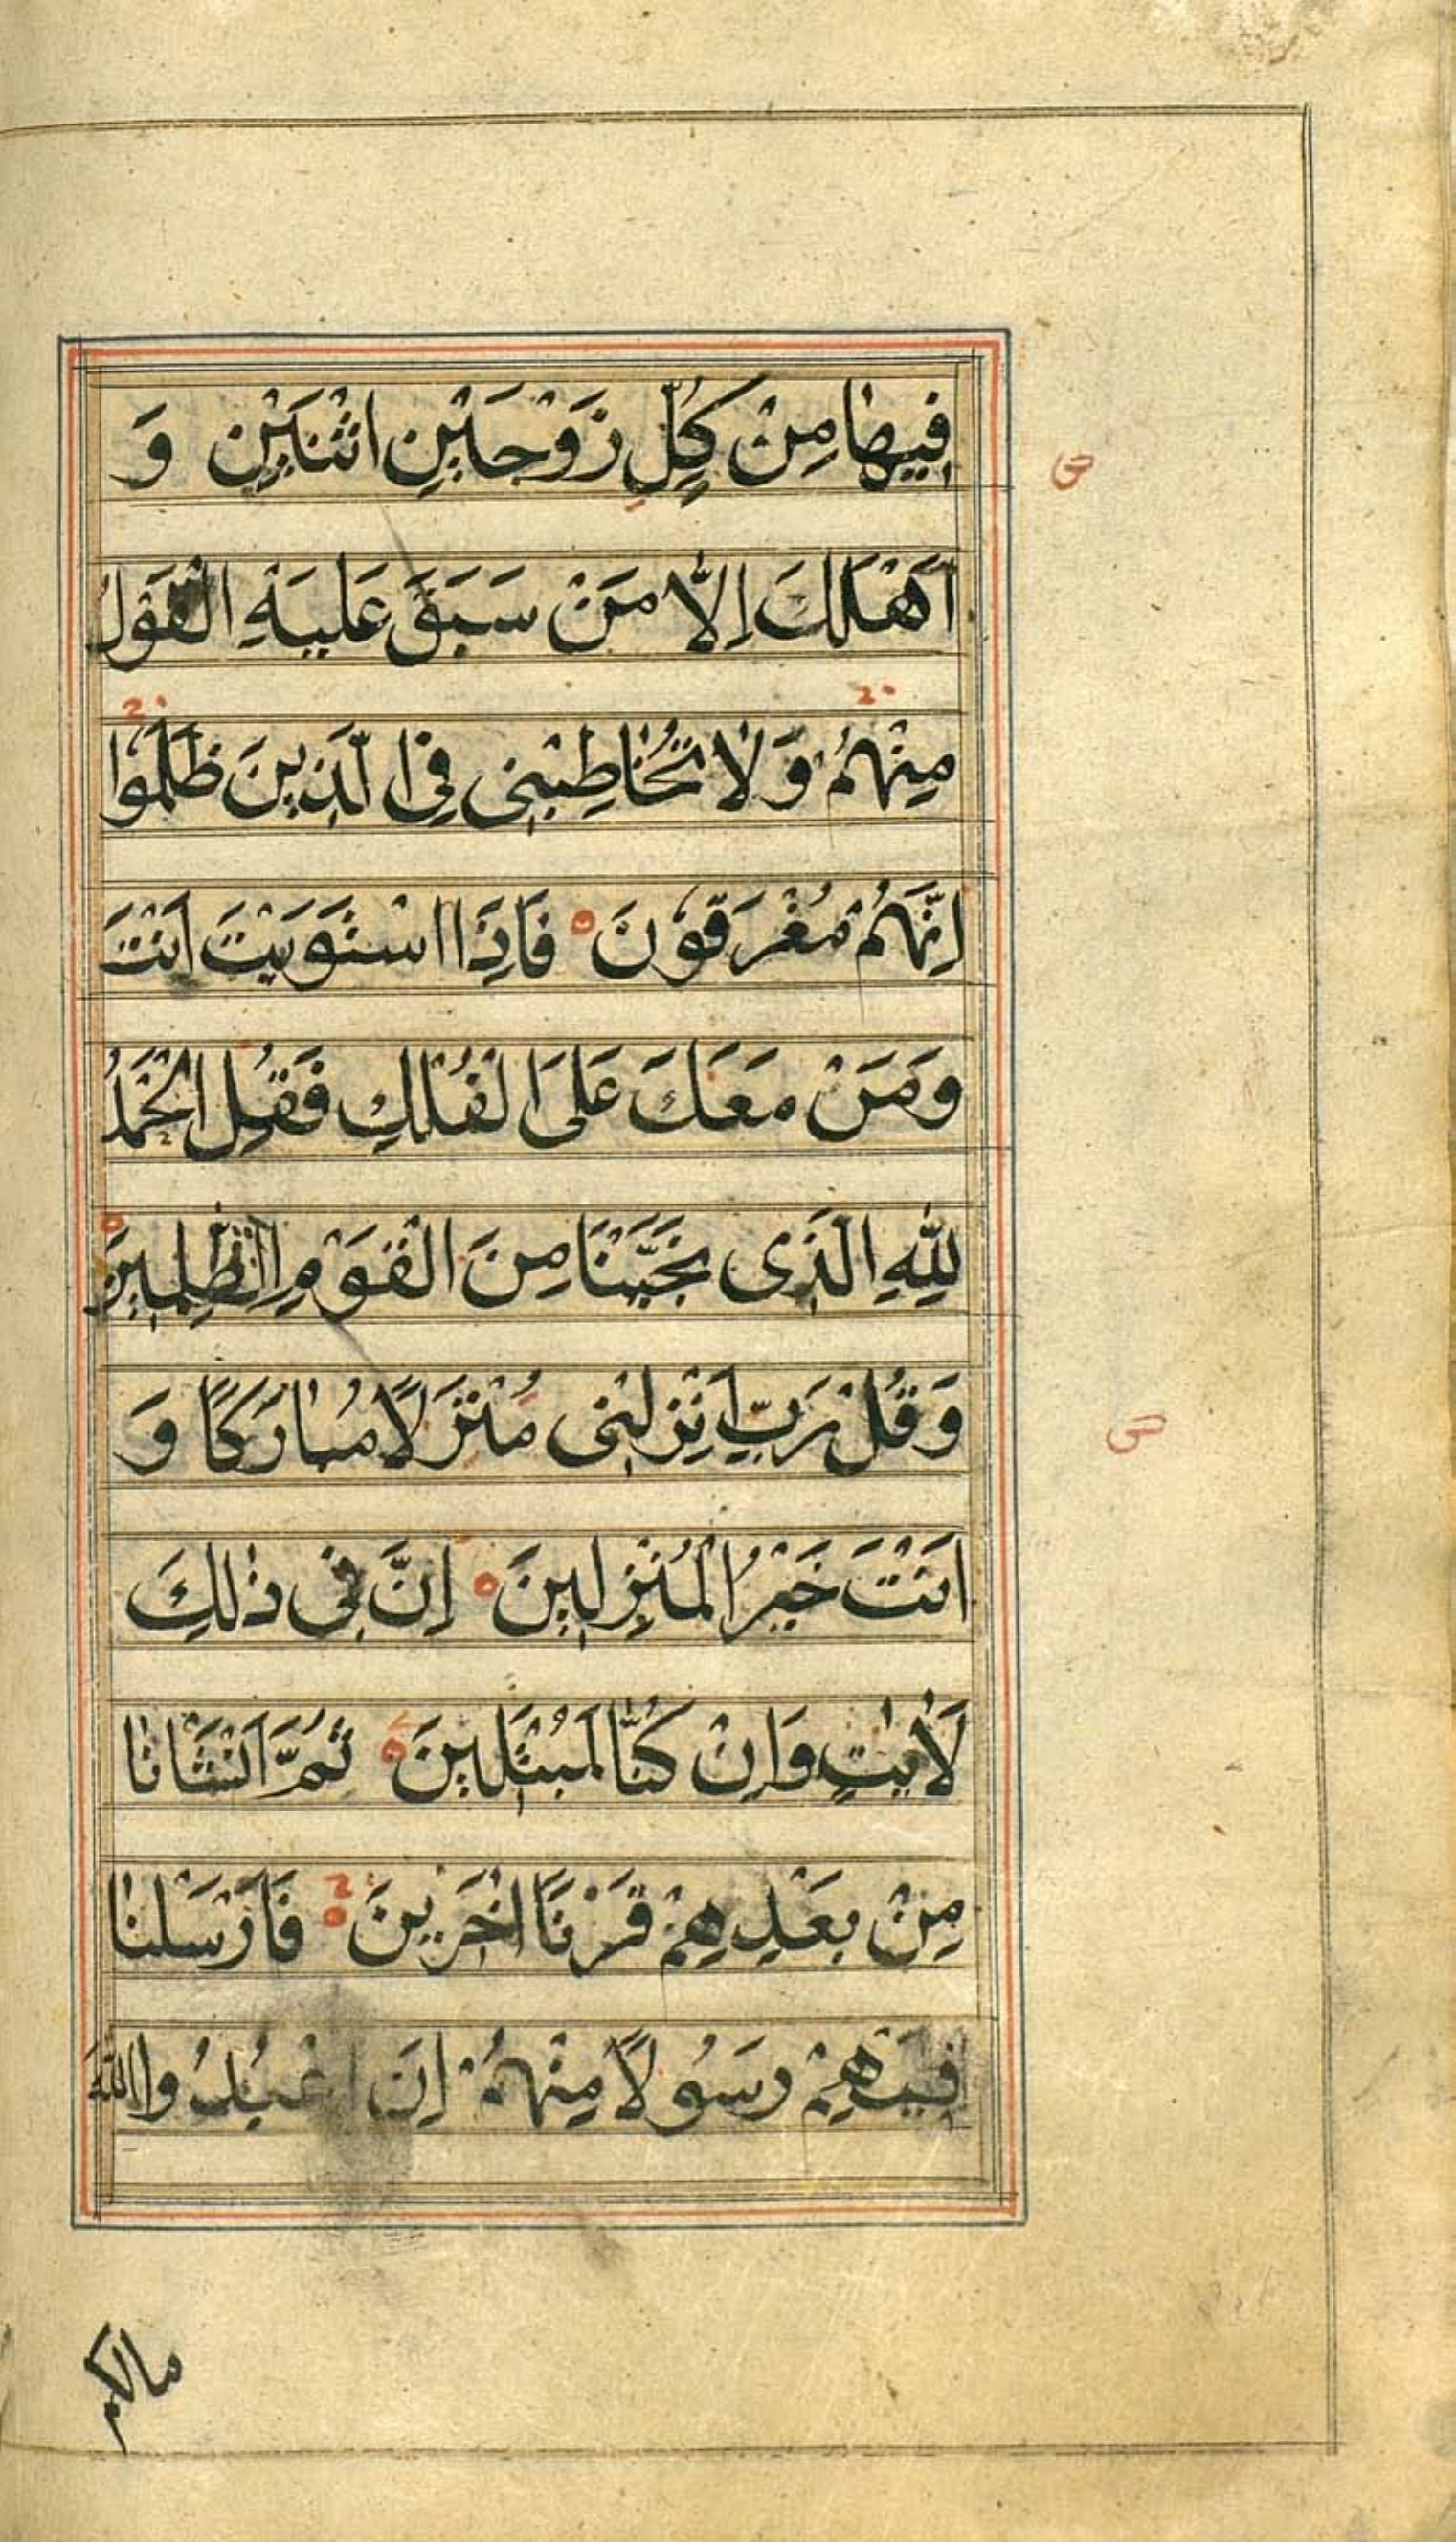 فِيهَا مِنْ كُلِّ زَوْجَيْنِ اثْنَيْنِ وَ
اَهْلَكَ اِلَّا مَنْ سَبَقَ عَلَيْهِ الْقَوْلُ
مِنْهُمْ وَلَا تُخَاطِبْنِى فِى الَّذِينَ ظَلَمُوا
اِنَّهُمْ مُغْرَقُوْنَ فَاِذَا اسْتَوَيْتَ اَنْتَ
وَمَنْ مَعَكَ عَلَى الْفُلْكِ فَقُلِ الْحَمْدُ
لِلّٰهِ الَّذِى نَجّٰىنَا مِنَ الْقَوْمِ الظّٰلِمِينَ
وَقُلْ رَبِّ اَنْزِلْنِى مُنْزَلًا مُبَارَكًا وَ
اَنْتَ خَيْرُ الْمُنْزِلِينَ اِنَّ فِى ذٰلِكَ
لَاٰيٰتٍ وَاِنْ كُنَّا لَمُبْتَلِينَ ثُمَّ اَنْشَاْنَا
مِنْ بَعْدِهِمْ قَرْنًا اٰخَرِينَ فَاَرْسَلْنَا
فِيْهِمْ رَسُولًا مِنْهُمْ اَنِ اعْبُدُوا اللّٰهَ
مالكم